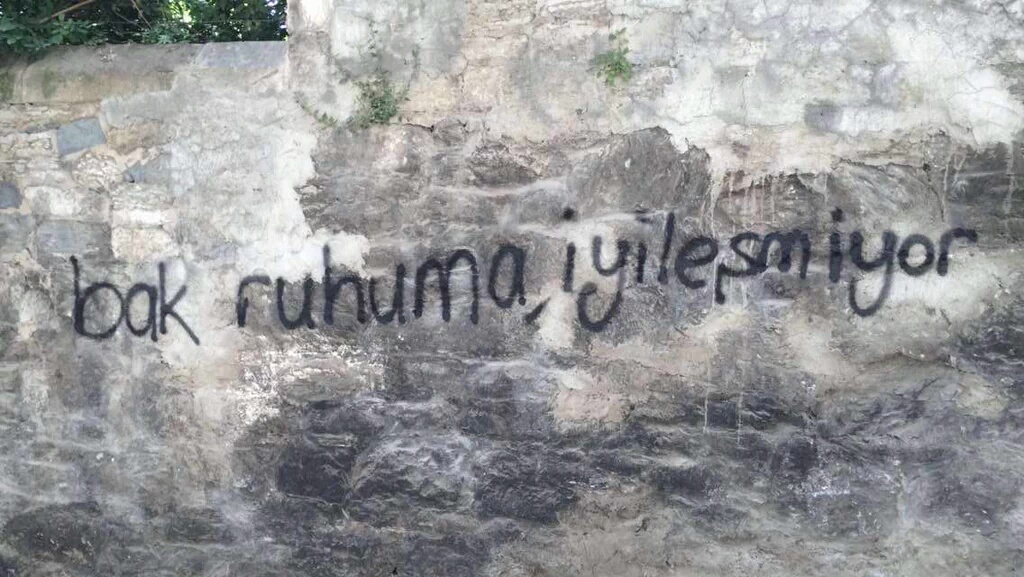 bak ruhuma, iyileşmiyor